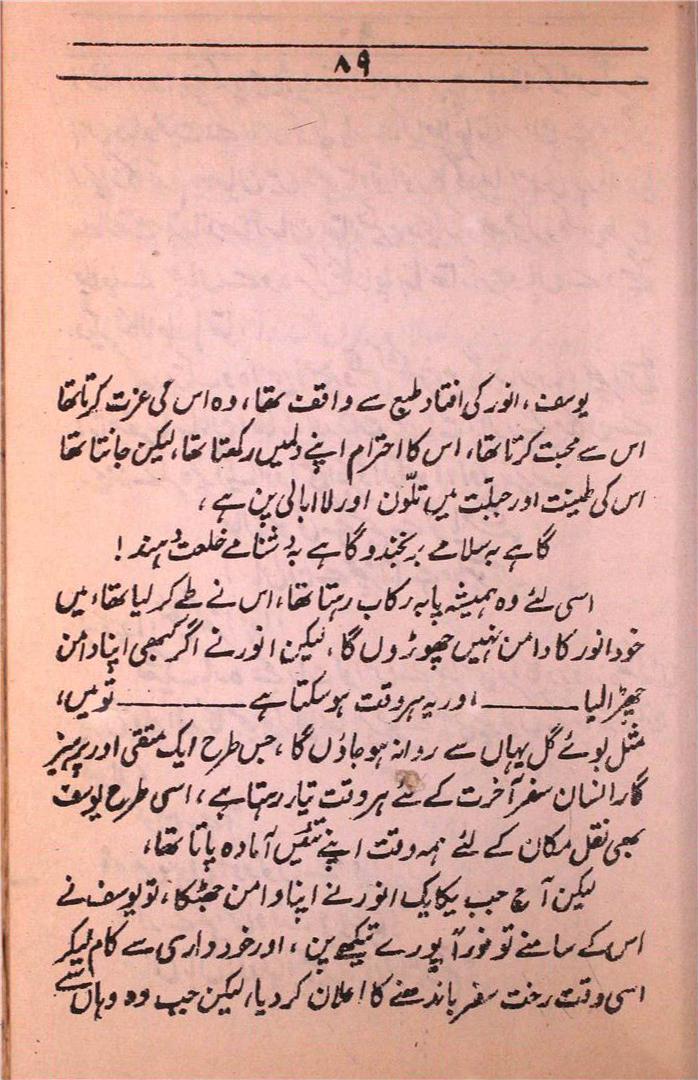 ۸۹
یوسف، انور کی افتاد طبع سے واقف تھا، وہ اس کی عزت کرتا تھا
اس سے محبت کرتا تھا، اس کا احترام اپنے دلمیں رکھتا تھا، لیکن جانتا تھا
اس کی طینت اور جبلّت میں تلوّن اور لاابالی پن ہے،
گاہے بہ سلامے برنجند و گاہے بہ دشنامے خلعت دہند!
اسی لئے وہ ہمیشہ پا بہ رکاب رہتا تھا، اس نے طے کر لیا تھا، میں
خود انور کا دامن نہیں چھوڑوں گا، لیکن انور نے اگر کبھی اپنا دامن
چھڑا لیا ——— ، اور یہ ہر وقت ہو سکتا ہے ——— تو میں،
مثل بوئے گل یہاں سے روانہ ہو جاؤں گا، جس طرح ایک متقی اور پرہیز
گار انسان سفر آخرت کے لئے ہر وقت تیار رہتا ہے، اسی طرح یوسف
بھی نقل مکان کے لئے ہمہ وقت اپنے تئیں آمادہ پاتا تھا،
لیکن آج جب یکایک انور نے اپنا دامن جھٹکا، تو یوسف نے
اس کے سامنے تو فوراً پورے تیکھے پن، اور خودداری سے کام لیکر
اسی وقت رخت سفر باندھنے کا اعلان کر دیا، لیکن جب وہ وہاں سے